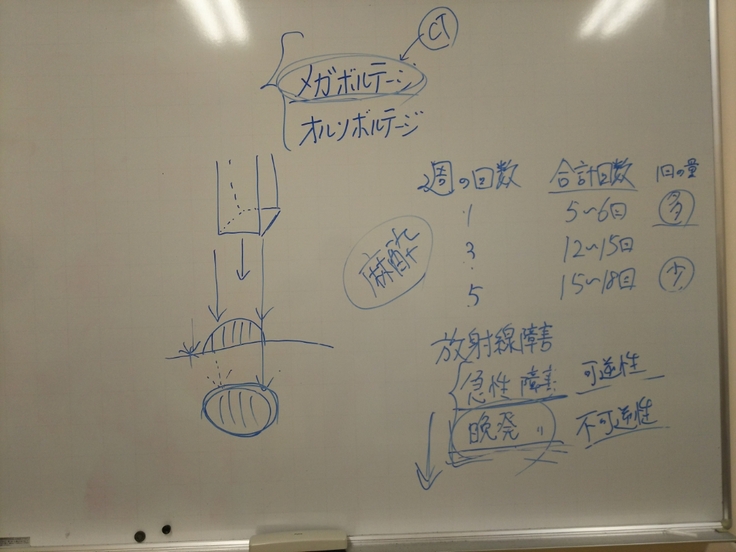 CT
メガボルテージ
オルソボルテージ
週の回数 合計回数 1回の量
1 5~6回 多
3 12~15回
5 15~18回 少
麻酔
放射線障害
急性障害 可逆性
晩発 〃 不可逆性